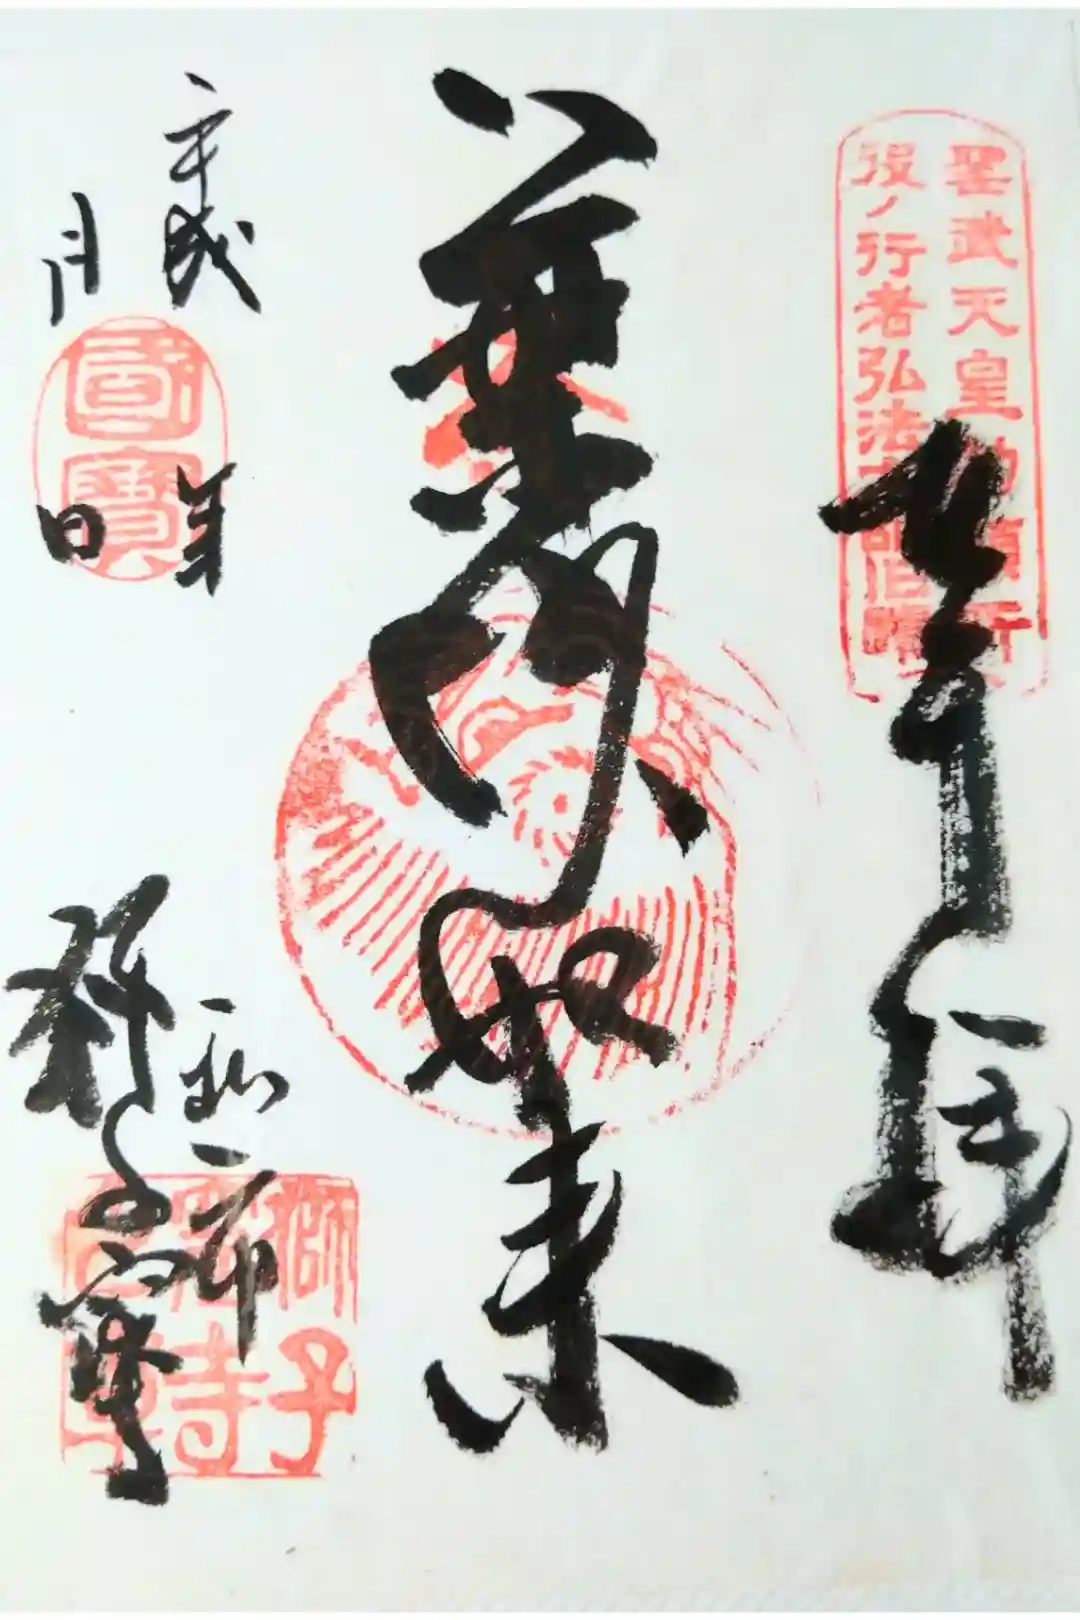 聖武天皇勅願所
役ノ行者弘法大師旧蹟
奉拝
薬師如来
平成 年
月 日
國寶
交野市
獅子窟寺
獅子
窟寺